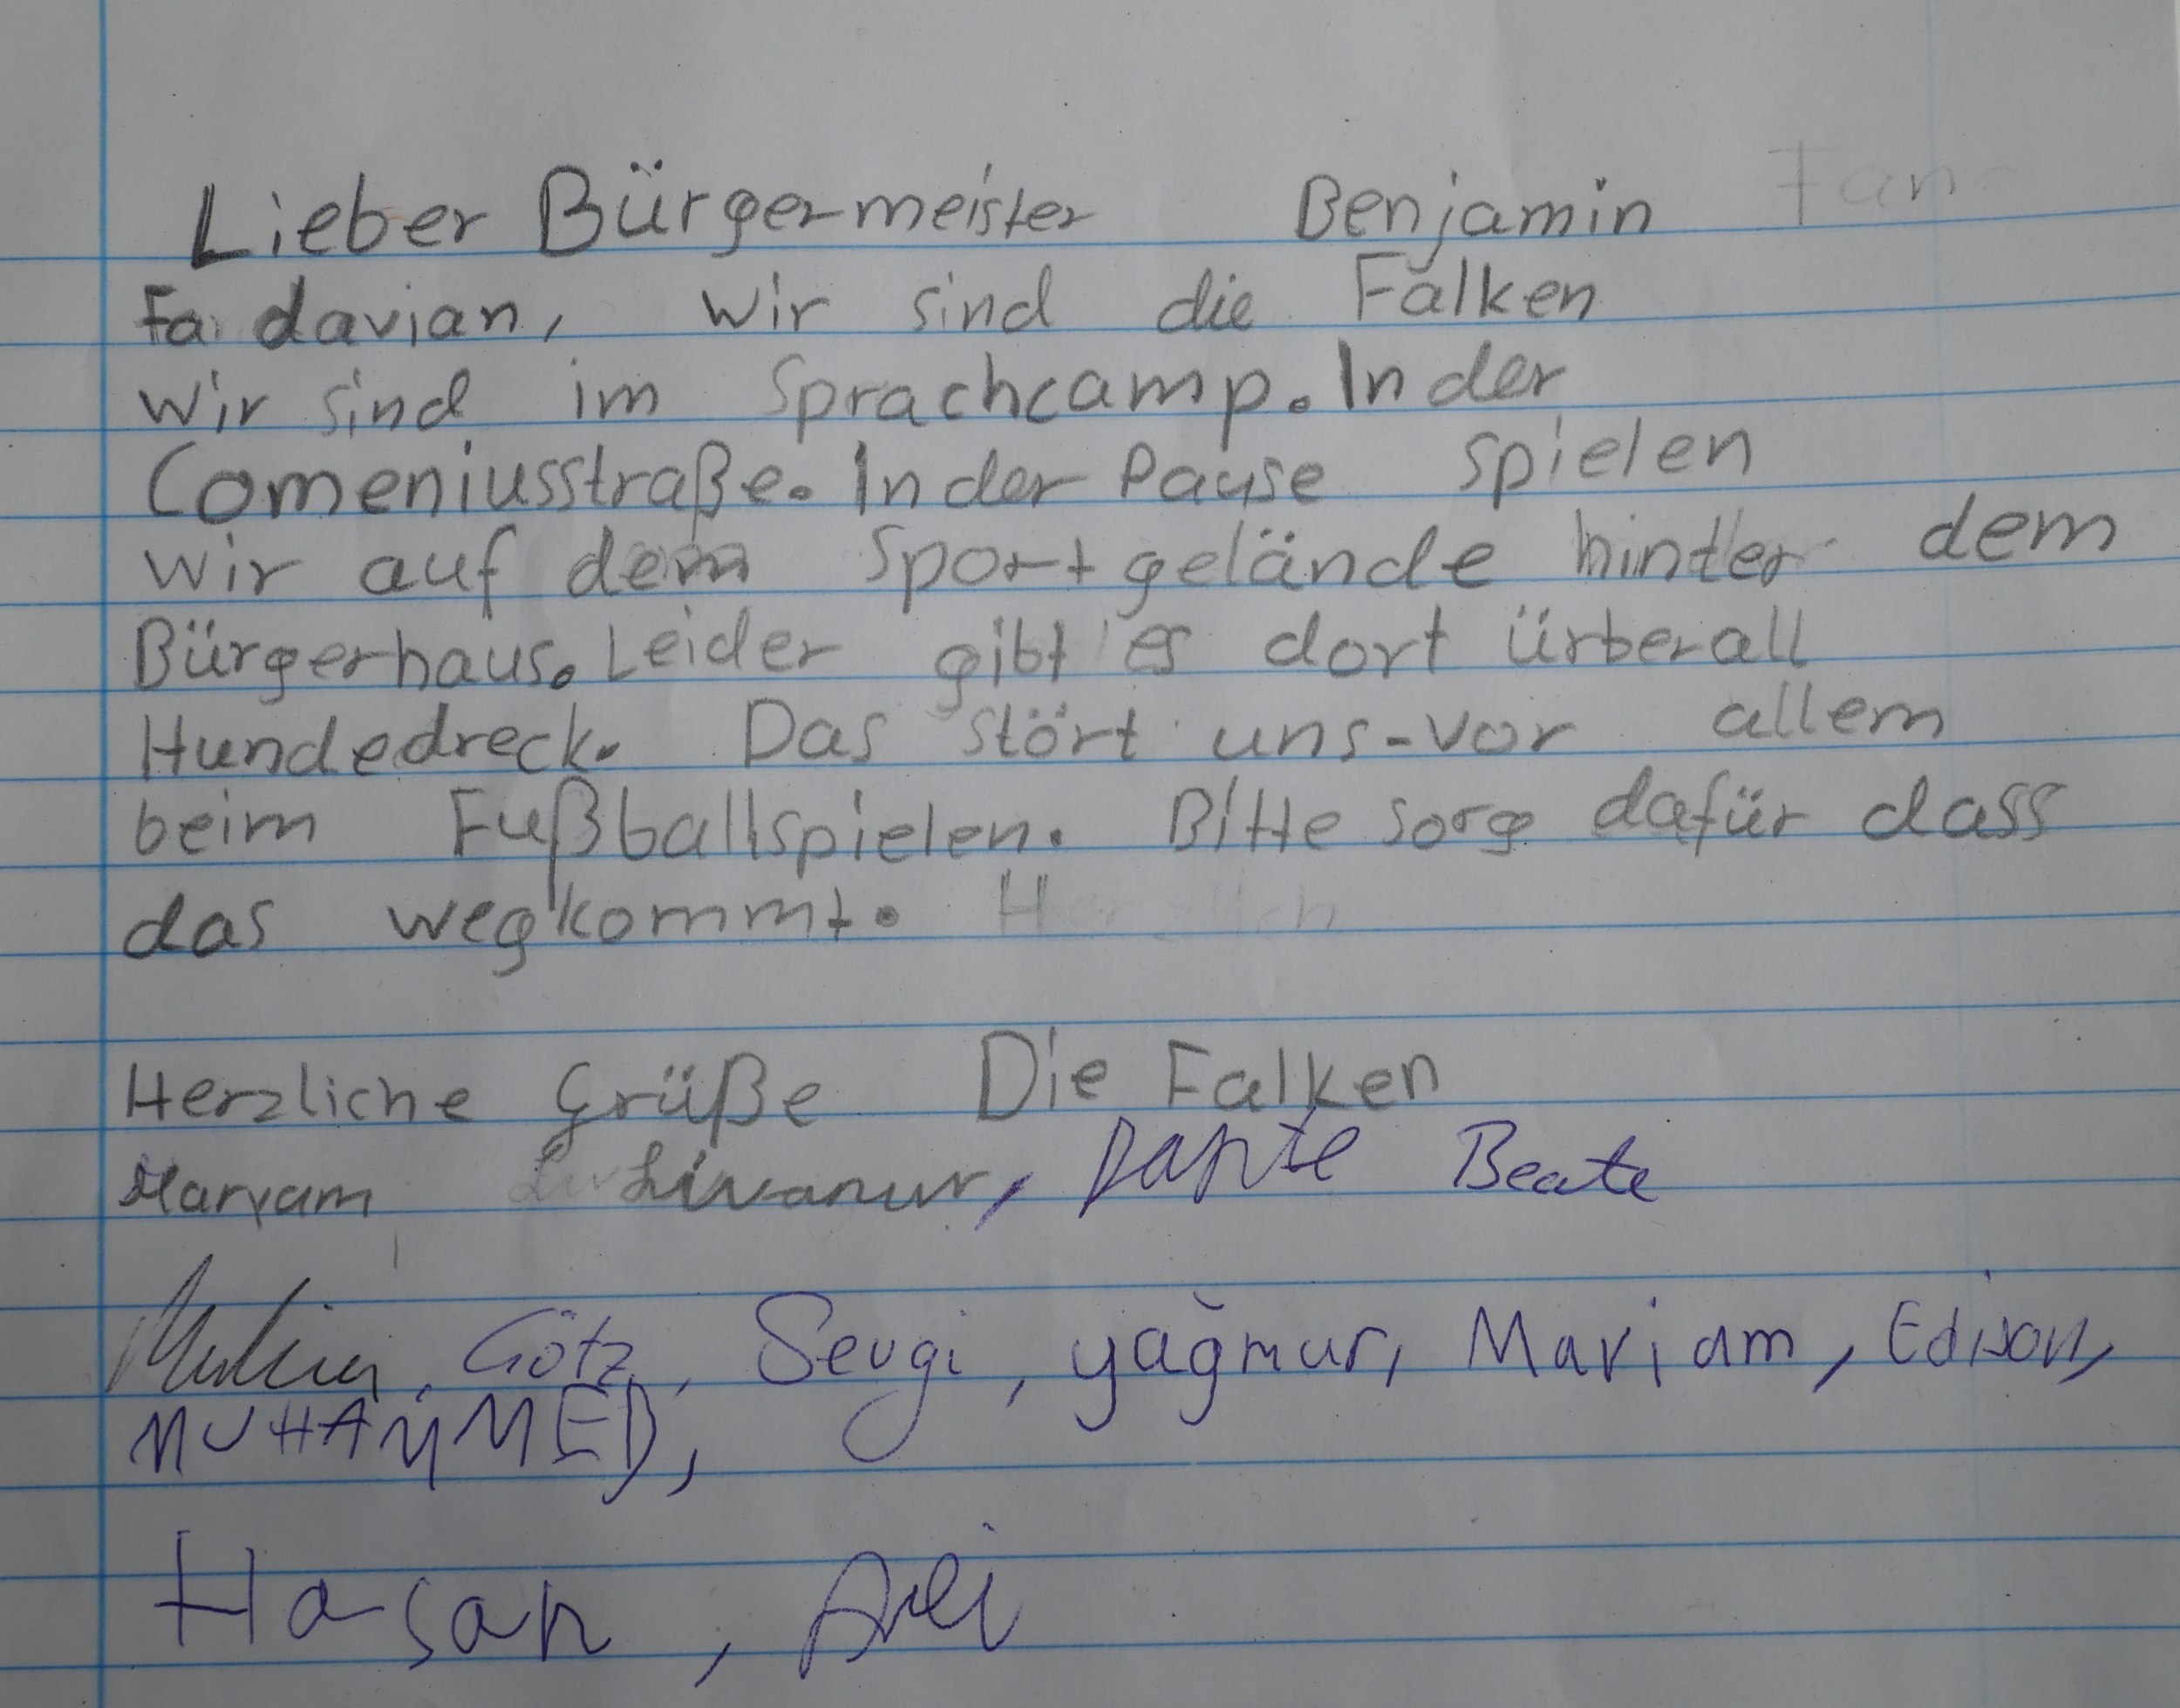 Lieber Bürgermeister Benjamin
Fa davian, wir sind die Falken
wir sind im Sprachcamp. In der
Comeniusstraße. In der Pause spielen
wir auf dem Sportgelände hinter dem
Bürgerhaus. Leider gibt es dort ürberall
Hundedreck. Das stört uns-vor allem
beim Fußballspielen. Bitte sorg dafür dass
das wegkommt.
Herzliche Grüße Die Falken
Maryam Livanur, Dante Beate
Götz, Sevgi, yağmur, Mariam, Edison,
MUHAMMED,
Hasan, Ali